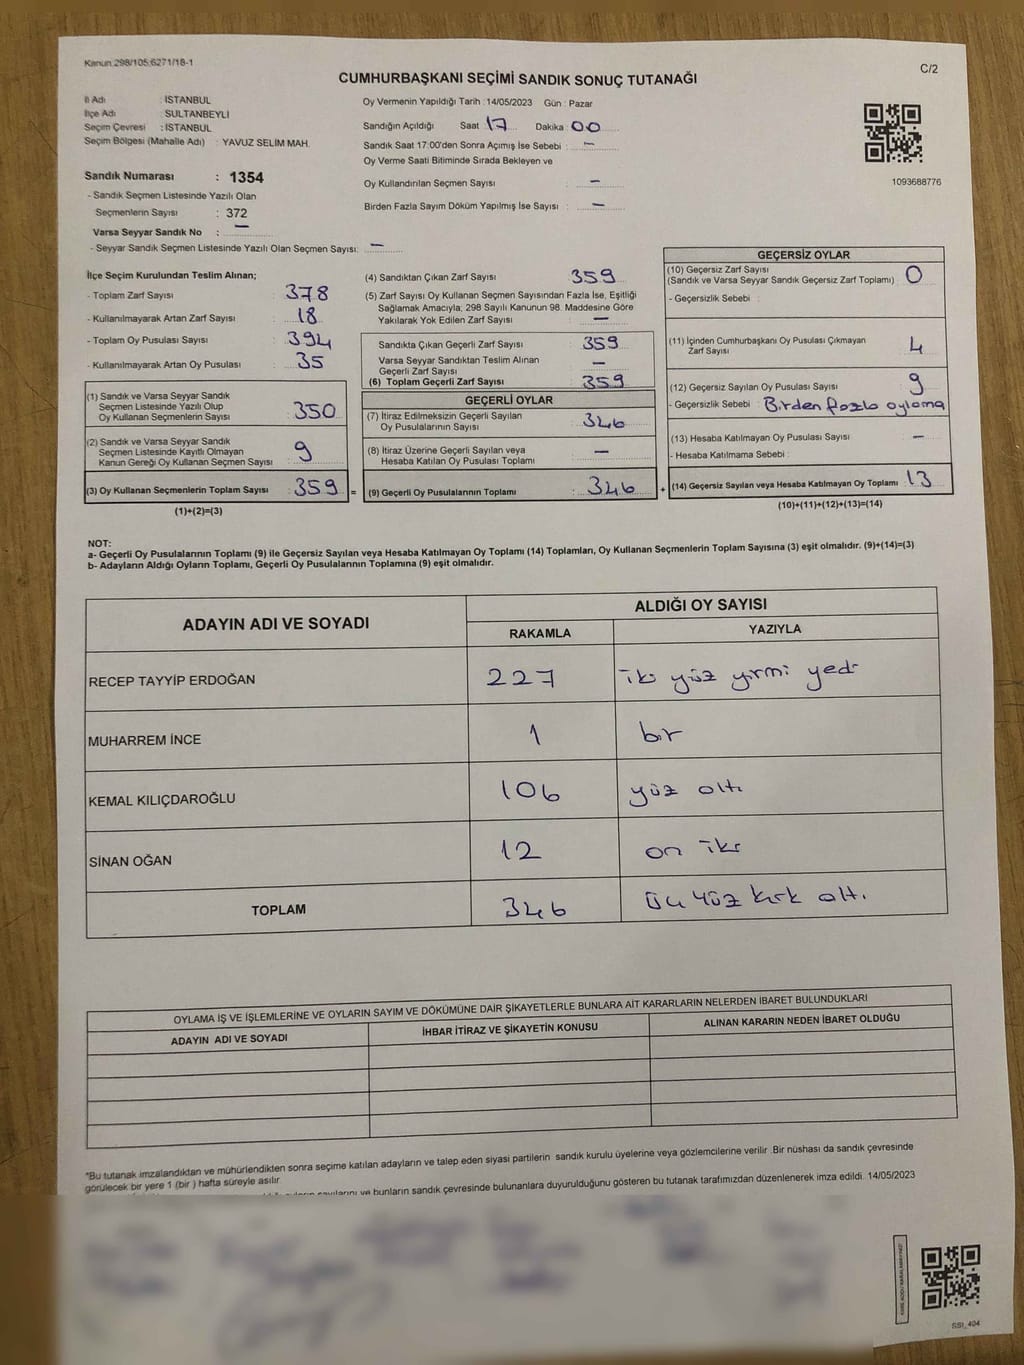 Kanun:298/105;6271/18-1
C/2
CUMHURBAŞKANI SEÇİMİ SANDIK SONUÇ TUTANAĞI
İl Adı : İSTANBUL
İlçe Adı : SULTANBEYLİ
Seçim Çevresi : İSTANBUL
Seçim Bölgesi (Mahalle Adı) : YAVUZ SELİM MAH.
Sandık Numarası : 1354
- Sandık Seçmen Listesinde Yazılı Olan
Seçmenlerin Sayısı : 372
Varsa Seyyar Sandık No : —
- Seyyar Sandık Seçmen Listesinde Yazılı Olan Seçmen Sayısı: —
Oy Vermenin Yapıldığı Tarih : 14/05/2023 Gün : Pazar
Sandığın Açıldığı Saat 17 Dakika 00
Sandık Saat 17:00'den Sonra Açımış İse Sebebi : —
Oy Verme Saati Bitiminde Sırada Bekleyen ve
Oy Kullandırılan Seçmen Sayısı : —
Birden Fazla Sayım Döküm Yapılmış İse Sayısı : —
1093688776
İlçe Seçim Kurulundan Teslim Alınan;
- Toplam Zarf Sayısı : 378
- Kullanılmayarak Artan Zarf Sayısı : 18
- Toplam Oy Pusulası Sayısı : 394
- Kullanılmayarak Artan Oy Pusulası : 35
(1) Sandık ve Varsa Seyyar Sandık
Seçmen Listesinde Yazılı Olup
Oy Kullanan Seçmenlerin Sayısı : 350
(2) Sandık ve Varsa Seyyar Sandık
Seçmen Listesinde Kayıtlı Olmayan
Kanun Gereği Oy Kullanan Seçmen Sayısı : 9
(3) Oy Kullanan Seçmenlerin Toplam Sayısı : 359 =
(1)+(2)=(3)
(4) Sandıktan Çıkan Zarf Sayısı 359
(5) Zarf Sayısı Oy Kullanan Seçmen Sayısından Fazla İse, Eşitliği
Sağlamak Amacıyla; 298 Sayılı Kanunun 98. Maddesine Göre
Yakılarak Yok Edilen Zarf Sayısı : —
Sandıkta Çıkan Geçerli Zarf Sayısı : 359
Varsa Seyyar Sandıktan Teslim Alınan
Geçerli Zarf Sayısı : —
(6) Toplam Geçerli Zarf Sayısı : 359
GEÇERLİ OYLAR
(7) İtiraz Edilmeksizin Geçerli Sayılan
Oy Pusulalarının Sayısı : 346
(8) İtiraz Üzerine Geçerli Sayılan veya
Hesaba Katılan Oy Pusulası Toplamı : —
(9) Geçerli Oy Pusulalarının Toplamı : 346 +
GEÇERSİZ OYLAR
(10) Geçersiz Zarf Sayısı
(Sandık ve Varsa Seyyar Sandık Geçersiz Zarf Toplamı) : 0
- Geçersizlik Sebebi :
(11) İçinden Cumhurbaşkanı Oy Pusulası Çıkmayan
Zarf Sayısı : 4
(12) Geçersiz Sayılan Oy Pusulası Sayısı : 9
- Geçersizlik Sebebi : Birden fazla oylama
(13) Hesaba Katılmayan Oy Pusulası Sayısı : —
- Hesaba Katılmama Sebebi :
(14) Geçersiz Sayılan veya Hesaba Katılmayan Oy Toplamı : 13
(10)+(11)+(12)+(13)=(14)
NOT:
a- Geçerli Oy Pusulalarının Toplamı (9) ile Geçersiz Sayılan veya Hesaba Katılmayan Oy Toplamı (14) Toplamları, Oy Kullanan Seçmenlerin Toplam Sayısına (3) eşit olmalıdır. (9)+(14)=(3)
b- Adayların Aldığı Oyların Toplamı, Geçerli Oy Pusulalarının Toplamına (9) eşit olmalıdır.
ADAYIN ADI VE SOYADI
ALDIĞI OY SAYISI
RAKAMLA YAZIYLA
RECEP TAYYİP ERDOĞAN 227 iki yüz yirmi yedi
MUHARREM İNCE 1 bir
KEMAL KILIÇDAROĞLU 106 yüz altı
SİNAN OĞAN 12 on iki
TOPLAM 346 üç yüz kırk altı
OYLAMA İŞ VE İŞLEMLERİNE VE OYLARIN SAYIM VE DÖKÜMÜNE DAİR ŞİKAYETLERLE BUNLARA AİT KARARLARIN NELERDEN İBARET BULUNDUKLARI
ADAYIN ADI VE SOYADI İHBAR İTİRAZ VE ŞİKAYETİN KONUSU ALINAN KARARIN NEDEN İBARET OLDUĞU
*Bu tutanak imzalandıktan ve mühürlendikten sonra seçime katılan adayların ve talep eden siyasi partilerin sandık kurulu üyelerine veya gözlemcilerine verilir. Bir nüshası da sandık çevresinde
görülecek bir yere 1 (bir) hafta süreyle asılır.
ve bunların sandık çevresinde bulunanlara duyurulduğunu gösteren bu tutanak tarafımızdan düzenlenerek imza edildi. 14/05/2023
SSI_404